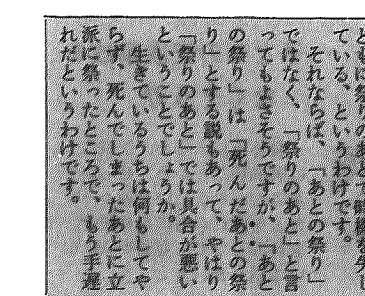 ともに祭りのあとで時機を失し
ている、というわけです。
それならば、「あとの祭り」
ではなく、「祭りのあと」と言
ってもよさそうですが、「あと
の祭り」は「死んだあとの祭
り」とする説もあって、やはり
「祭りのあと」では具合が悪い
ということでしょうか。
生きているうちは何もしてや
らず、死んでしまったあとに立
派に祭ったところで、もう手遅
れだというわけです。